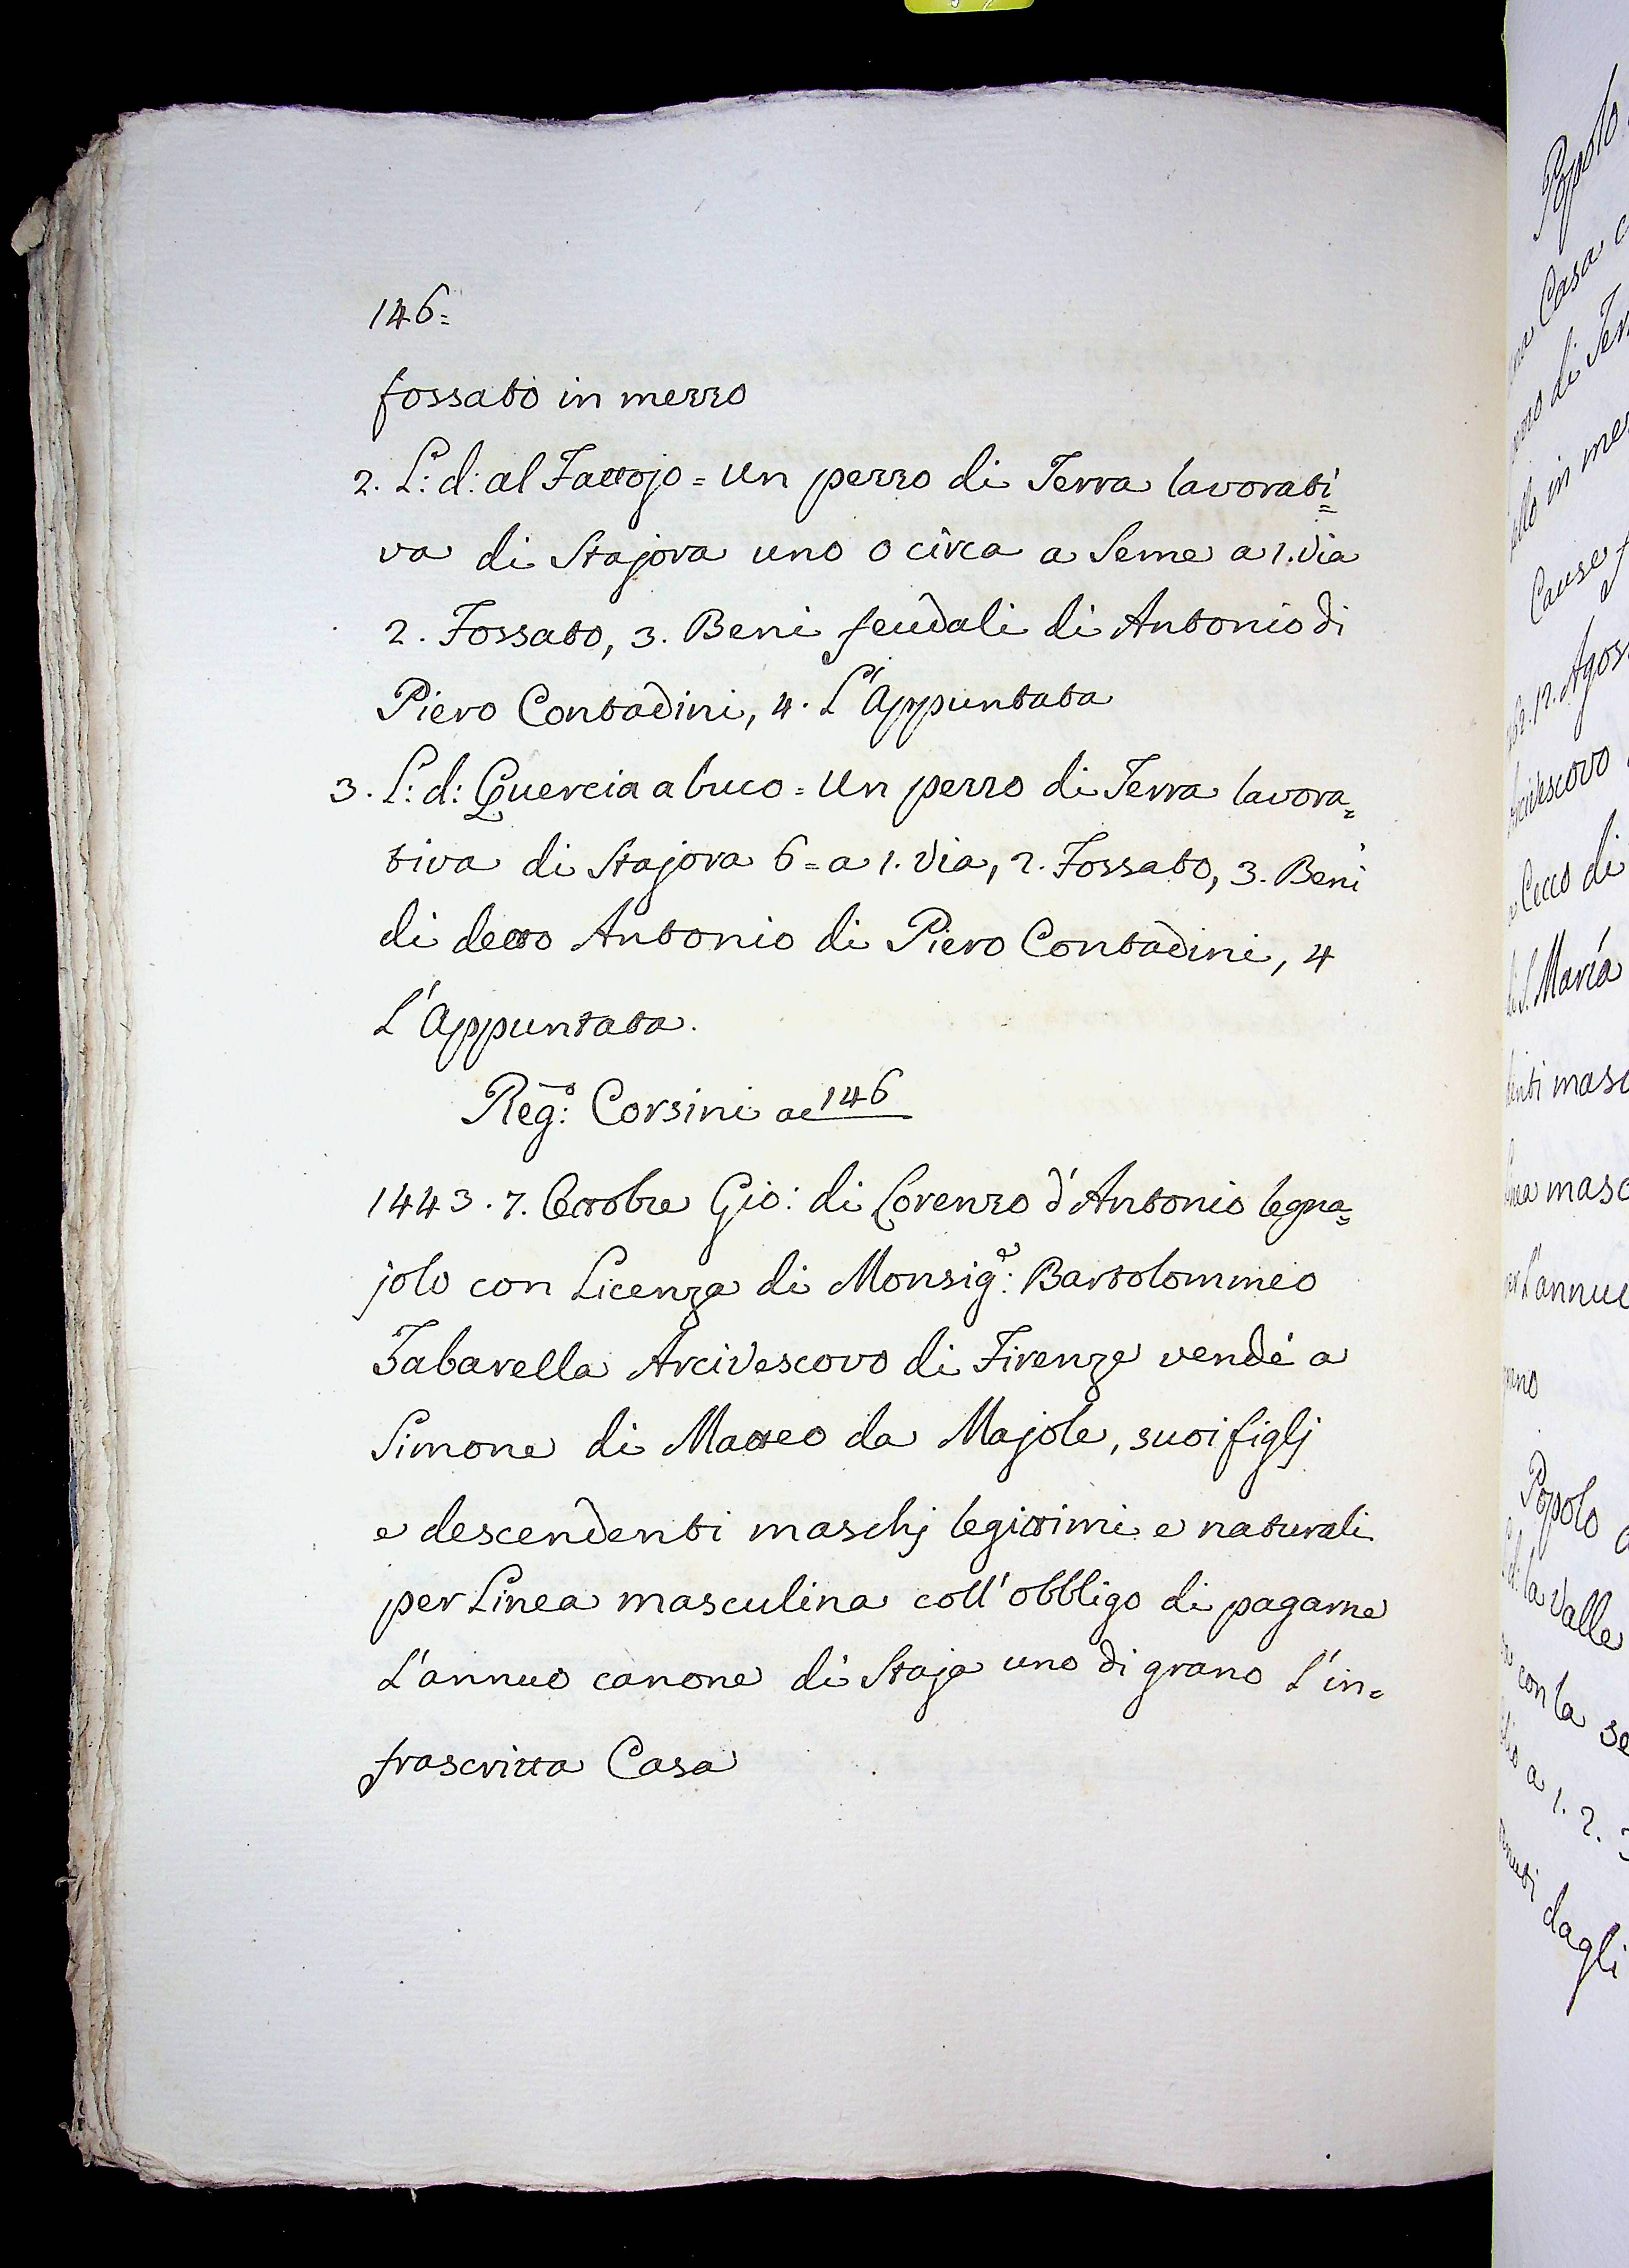 146=
fossato in mezzo
2. L: d: al Fattojo = Un pezzo di Terra lavorati=
va di Stajora uno o circa a Seme a 1. Via
2. Fossato, 3. Beni feudali di Antonio di
Piero Contadini, 4. L'Appuntata
3. L: d: Quercia a buco = Un pezzo di Terra lavora=
tiva di Stajora 6 = a 1. Via, 2. Fossato, 3. Beni
di detto Antonio di Piero Contadini, 4
L'Appuntata.
Reg:º Corsini ac 146
1443. 7. Ottobre Gio: di Lorenzo d'Antonio legna=
jolo con Licenza di Monsig:e Bartolommeo
Zabarella Arcivescovo di Firenze vendé a
Simone di Matteo da Majole, suoi figlj
e descendenti maschj legittimi e naturali
per Linea masculina coll'obbligo di pagarne
L'annuo canone di Staja uno di grano l'in=
frascritta Casa
Popolo
Casa
di
in
Cause
12. Agos
Cecco di
S. Maria
masc
masc
L'annuo
Popolo
la Valle
con la se
a 1. 2. 3
dagli